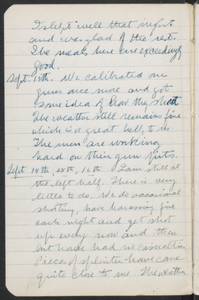 I slept well that night
and was glad of the rest.
The meals here are exceedingly
good.
Sept. 13th. We calibrated our
guns once more and got
some idea of how they shoot
The weather still remains fine
which is a great help to us
The men are working
hard on their gun pits.
Sept. 14th, 15th, 16th I am still at
the left half. There is very
little to do. We do occasional
shooting, have harassing fire
each night and get shot
up every now and then
but have had no casualties
Pieces of splinter have come
quite close to me. The